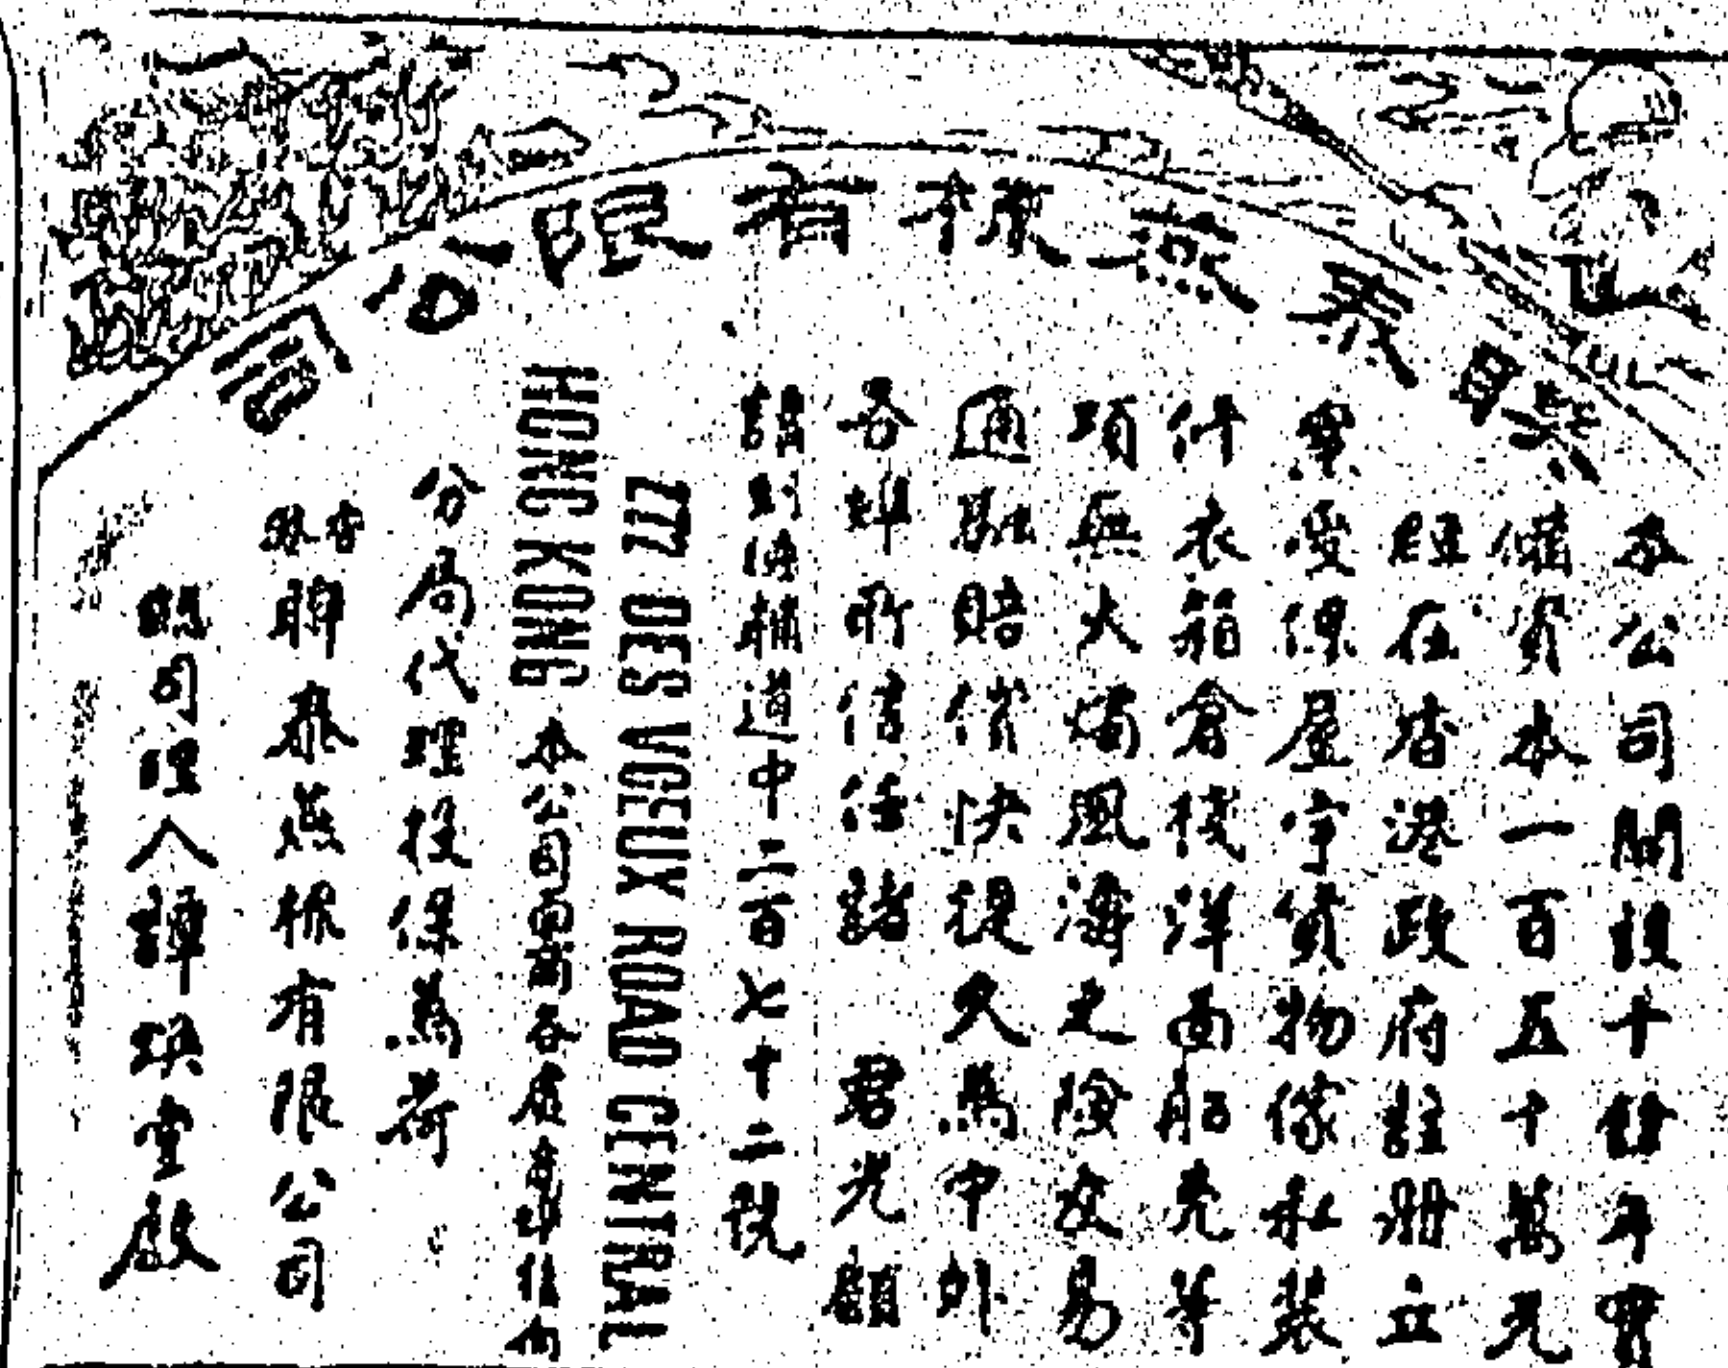 聯泰燕梳有限公司
本公司開設十餘年實
儲資本一百五十萬元
經在香港政府註冊立
案受保屋宇貨物傢私裝
修衣箱倉棧洋面船壳等
項無火燭風濤之險交易
通融賠償快捷久為中外
各埠所信任諸 君光顧
請到德輔道中二百七十二號
272 DES VOEUX ROAD CENTRAL
HONG KONG 本公司 各
分局代理投保為荷
香 聯泰燕梳有限公司
總司理人譚煥堂啟